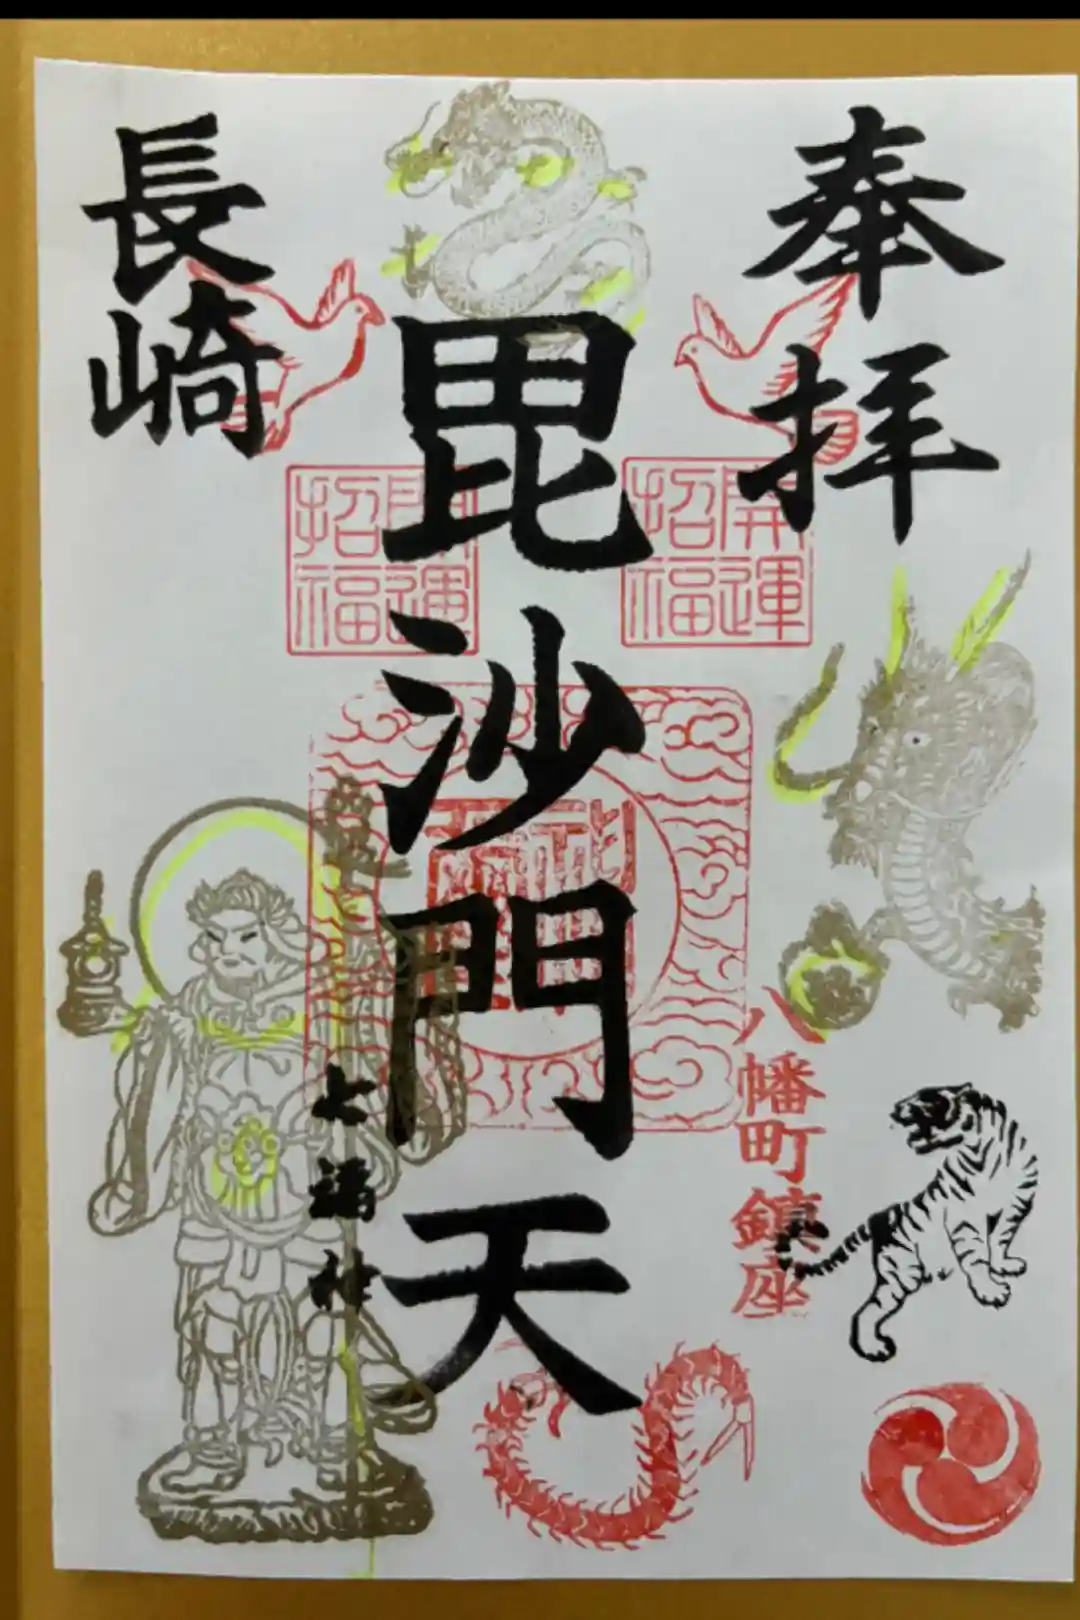 奉拝
開運招福
八幡町鎮座
毘沙門天
開運招福
七福神
長崎